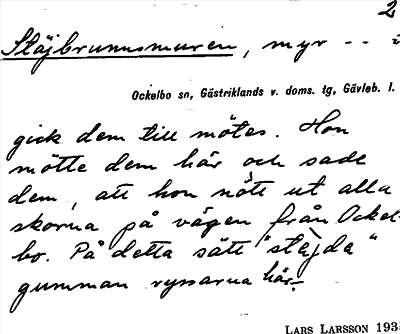 2
Stäjbrunnsmuren, myr --
Ockelbo sn, Gästriklands v. doms. tg, Gävleb. l.
gick dem till mötes. Hon
mötte dem här och sade
dem, att hon nött ut alla
skorna på vägen från Ockel-
bo. På detta sätt "stäjda"
gumman ryssarna här.
LARS LARSSON 193